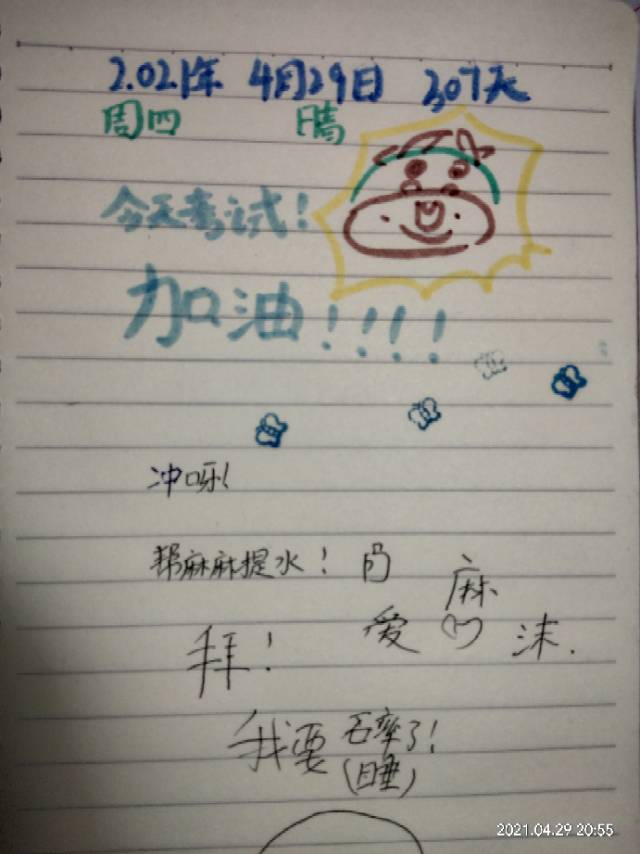 2.021年 4月29日 307天
周四 晴
今天考试!
加油!!!!
冲呀!
帮麻麻提水!
麻
爱 沫.
拜!
我要碎了!
(睡)
2021.04.29 20:55